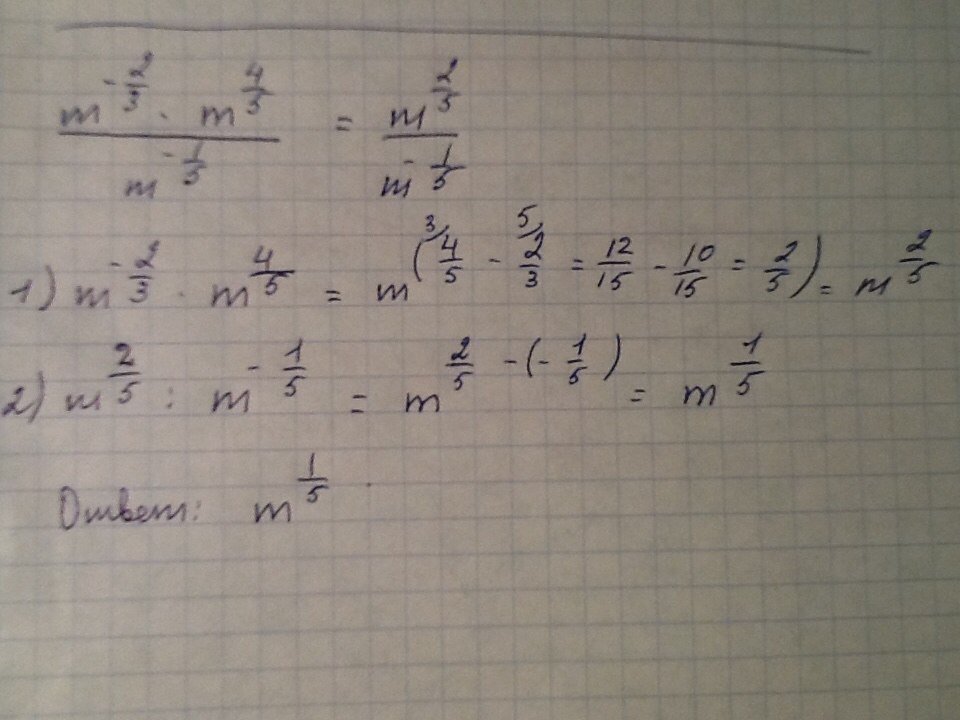 m^{-\frac{2}{3}} · m^{\frac{4}{5}} / m^{-\frac{1}{5}} = m^{\frac{2}{5}} / m^{-\frac{1}{5}}
1) m^{-\frac{2}{3}} · m^{\frac{4}{5}} = m^{(\frac{4}{5}^{3} - \frac{2}{3}^{5} = \frac{12}{15} - \frac{10}{15} = \frac{2}{5})} = m^{\frac{2}{5}}
2) m^{\frac{2}{5}} : m^{-\frac{1}{5}} = m^{\frac{2}{5} - (-\frac{1}{5})} = m^{\frac{1}{5}}
Ответ: m^{\frac{1}{5}}